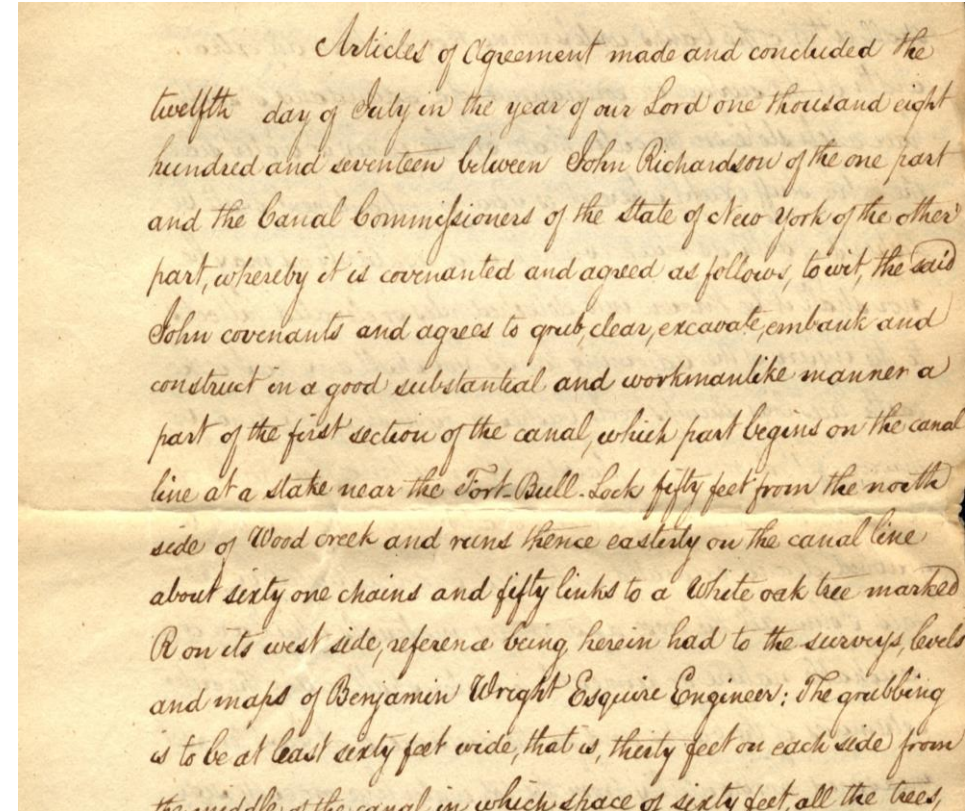 Articles of Agreement made and concluded the
twelfth day of July in the year of our Lord one thousand eight
hundred and seventeen between John Richardson of the one part
and the Canal Commissioners of the State of New York of the other
part, whereby it is covenanted and agreed as follows, to wit, the said
John covenants and agrees to grub, clear, excavate, embank and
construct in a good substantial and workmanlike manner a
part of the first section of the canal, which part begins on the canal
line at a stake near the Fort-Bull-Lock fifty feet from the north
side of Wood creek and runs thence easterly on the canal line
about sixty one chains and fifty links to a White oak tree marked
R on its west side, reference being herein had to the surveys, levels
and maps of Benjamin Wright Esquire Engineer: The grubbing
is to be at least sixty feet wide, that is, thirty feet on each side from
the middle of the canal in which space of sixty feet all the trees,